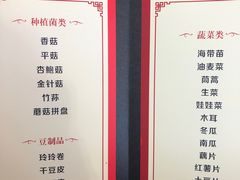 种植菌类
香菇
平菇
杏鲍菇
金针菇
竹荪
蘑菇拼盘
豆制品
玲玲卷
干豆皮
蔬菜类
海带苗
油麦菜
茼蒿
生菜
娃娃菜
木耳
冬瓜
南瓜
藕片
红薯片